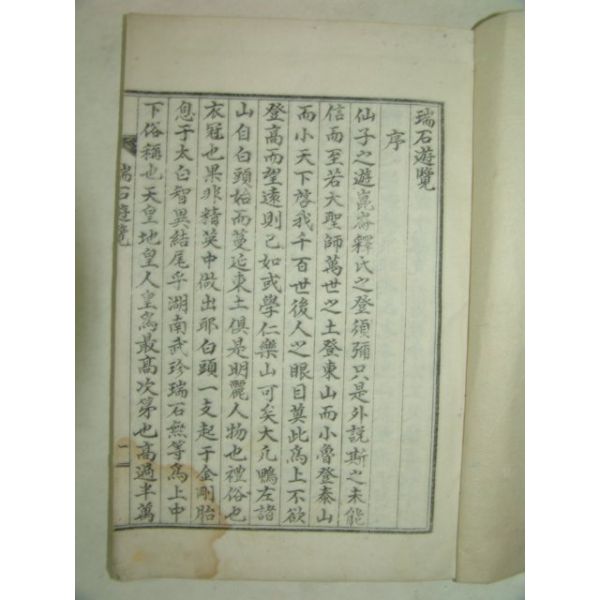 瑞石遊覽
序
仙子之遊崑崙釋氏之登須彌只是外說斯之未能
信而至若大聖師萬世之土登東山而小魯登泰山
而小天下啓我千百世後人之眼目莫此爲上不欲
登高而望遠則已如或學仁樂山可矣大凡鴨左諸
山自白頭始而蔓延東土俱是明麗人物也禮俗也
衣冠也果非精英中做出耶白頭一支起于金剛胎
息于太白智異結尾乎湖南武珍瑞石無等爲上中
下俗稱也天皇地皇人皇爲最高次第也高過半萬
瑞石遊覽
一